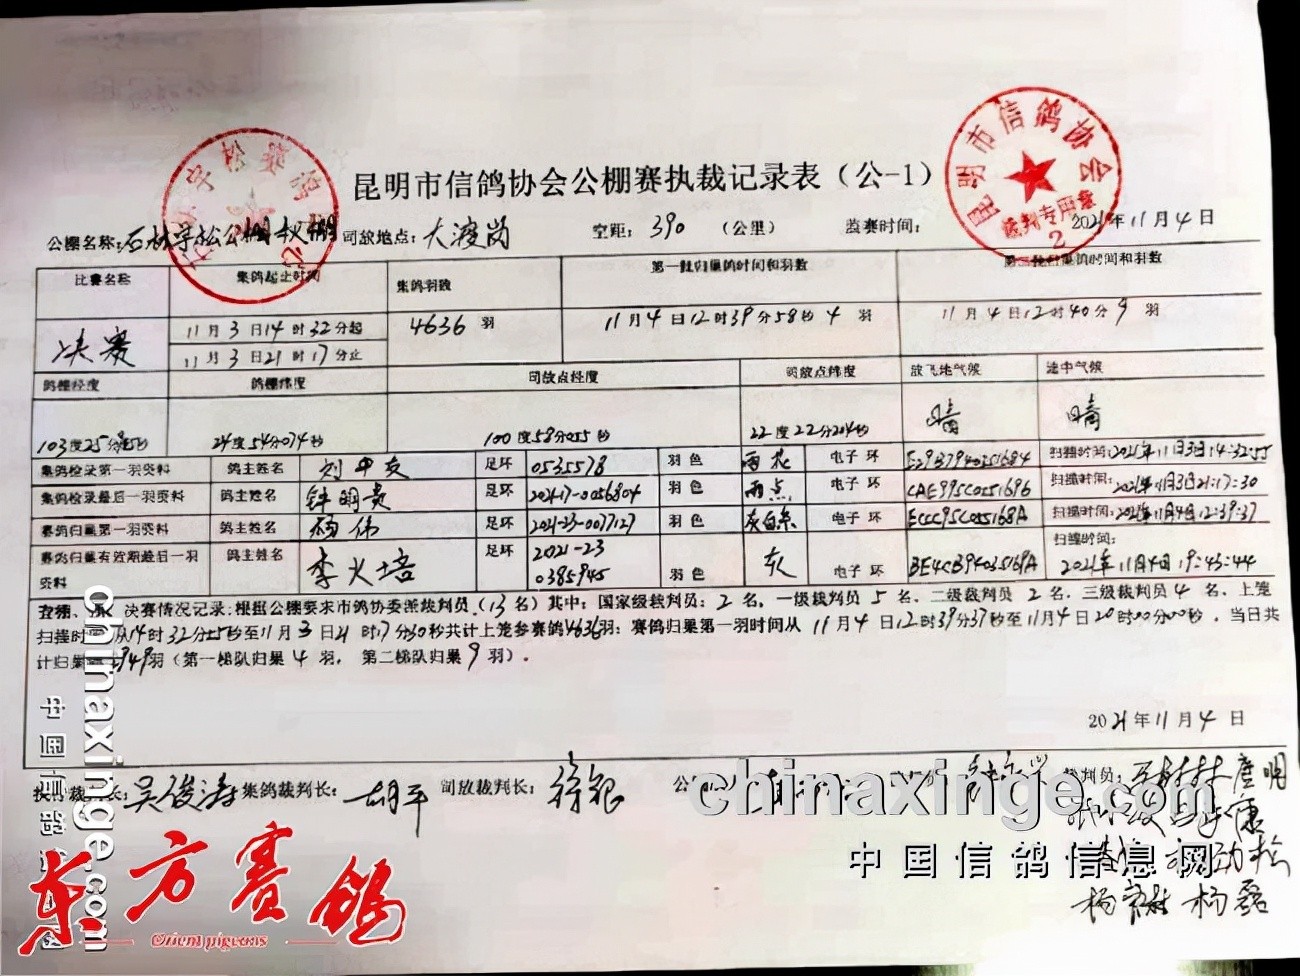 昆明市信鸽协会公棚赛执裁记录表（公-1）
昆明市信鸽协会
裁判专用章
2
公棚名称: 石林宇松公棚秋棚 司放地点: 大渡岗 空距: 390 （公里） 监赛时间: 2021年11月4日
比赛名称 集鸽起止时间 集鸽羽数 第一批归巢鸽时间和羽数 第二批归巢鸽时间和羽数
决赛 11月3日14时32分起 4636羽 11月4日12时39分58秒4羽 11月4日12时40分9羽
11月3日21时17分止
鸽棚经度 鸽棚纬度 司放点经度 司放点纬度 放飞地气候 途中气候
103度25分 24度54分074秒 100度58分055秒 22度22分204秒 晴 晴
集鸽检录第一羽资料 鸽主姓名 刘平友 足环 0535578 羽色 雨花 电子环 扫描时间: 2021年11月3日14:32:55
集鸽检录最后一羽资料 鸽主姓名 钟明贵 足环 2021-17-0056804 羽色 雨点 电子环 CAE995C0551696 扫描时间: 2021年11月3日21:17:30
赛鸽归巢第一羽资料 鸽主姓名 杨伟 足环 2021-23-0077127 羽色 灰白条 电子环 ECCC95C055168A 扫描时间: 2021年11月4日12:39:37
赛鸽归巢有效期最后一羽资料 鸽主姓名 李火培 足环 2021-23 0385945 羽色 灰 电子环 扫描时间: 2021年11月4日19:43:44
决赛情况记录: 根据公棚要求市鸽协委派裁判员（13名）其中: 国家级裁判员: 2名、一级裁判员5名、二级裁判员2名、三级裁判员4名、上笼
扫描时间 月14时32分55秒至11月3日21时17分30秒共计上笼参赛鸽4636羽; 赛鸽归巢第一羽时间从11月4日12时39分37秒至11月4日20时00分00秒，当日共
计归巢 949羽（第一梯队归巢4羽，第二梯队归巢9羽）。
2021年11月4日
裁判长: 吴俊涛 集鸽裁判长: 胡平 司放裁判长: 裁判员: 唐明
杨磊
chinaxinge.com
中国信鸽信息网
chinaxinge.com
东方赛鸽
Orient pigeons